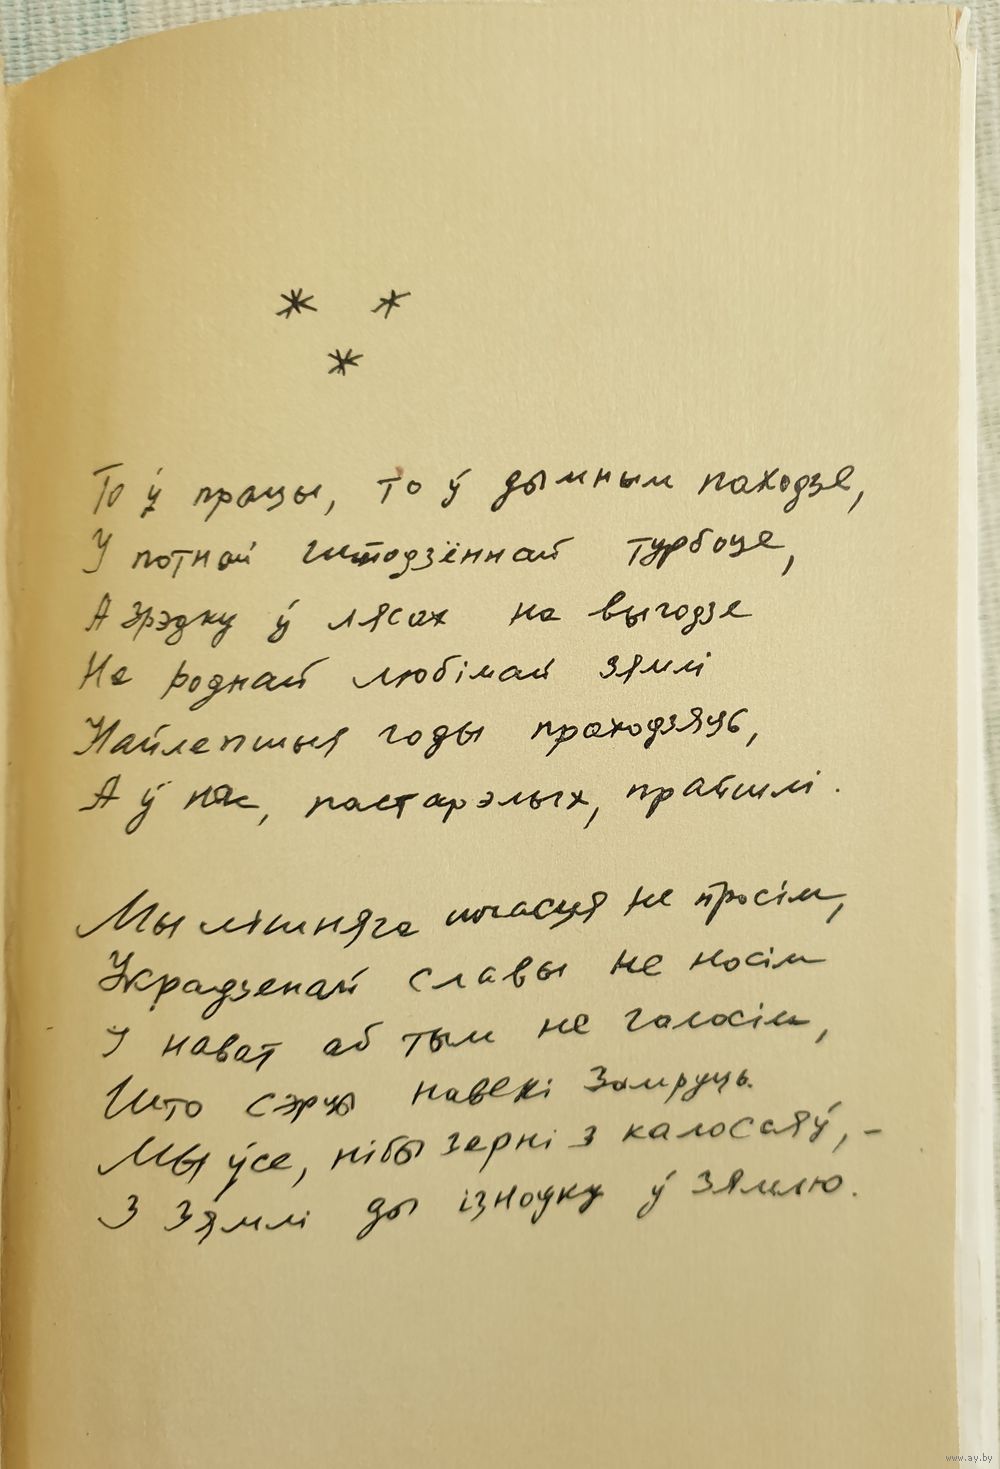 * *
*
То ў працы, то ў дымным паходзе,
У потнай штодзённай турбоце,
А зрэдку ў лясах на выгодзе
На роднай любімай зямлі
Найлепшыя годы праходзяць,
А ў нас, пастарэлых, прайшлі.
Мы лішняга шчасця не просім,
Украдзенай славы не носім
І нават аб тым не галосім,
Што сэрцы навекі замруць.
Мы ўсе, нібы зерні з каласаў, –
З зямлі ды ізноўку ў зямлю.
www.ay.by